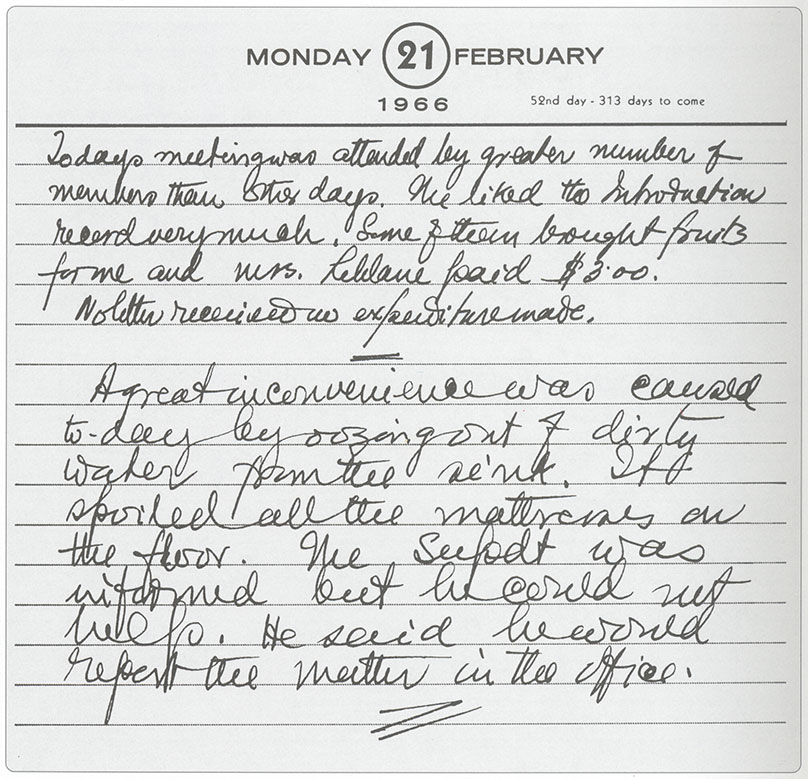 MONDAY 21 FEBRUARY
1966
52nd day - 313 days to come
Todays meeting was attended by greater number of
members than other days. The liked the Introduction
record very much. Some of them bought fruits
for me and mrs. paid $3.00.
No letter received no expenditure made.
A great inconvenience was caused
to-day by oozing out of dirty
water from the sink. It
spoiled all the mattresses on
the floor. The Supdt was
informed but he could not
help. He said he would
report the matter in the office.